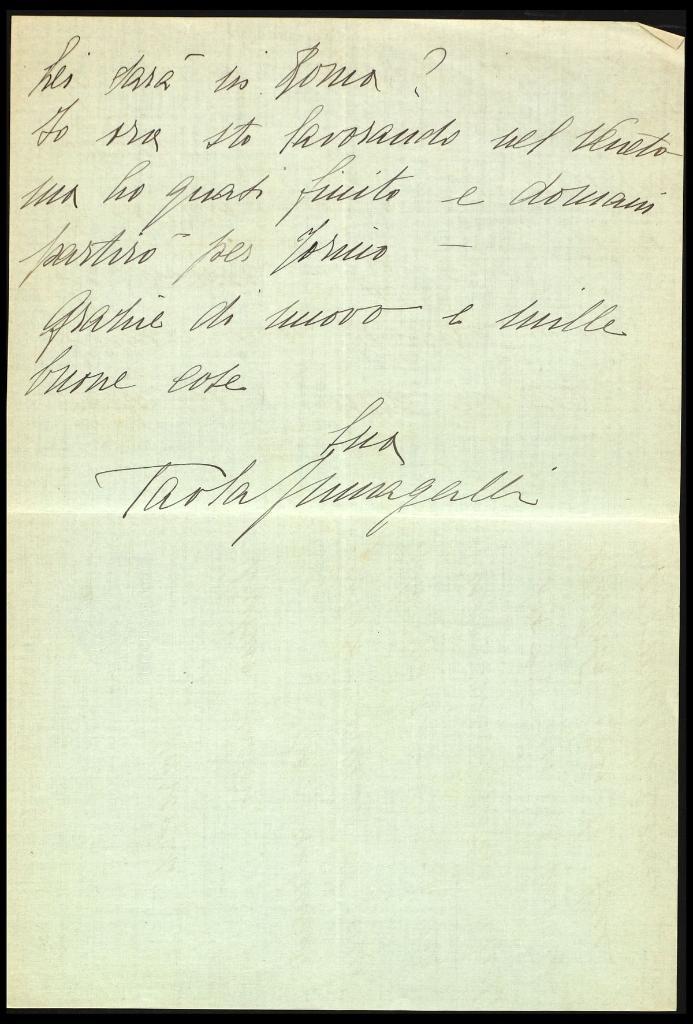 Lei sarà in Roma?
Io ora sto lavorando nel Veneto
ma ho quasi finito e domani
partirò per Torino —
Grazie di nuovo e mille
buone cose
Sua
Paola Fumagalli